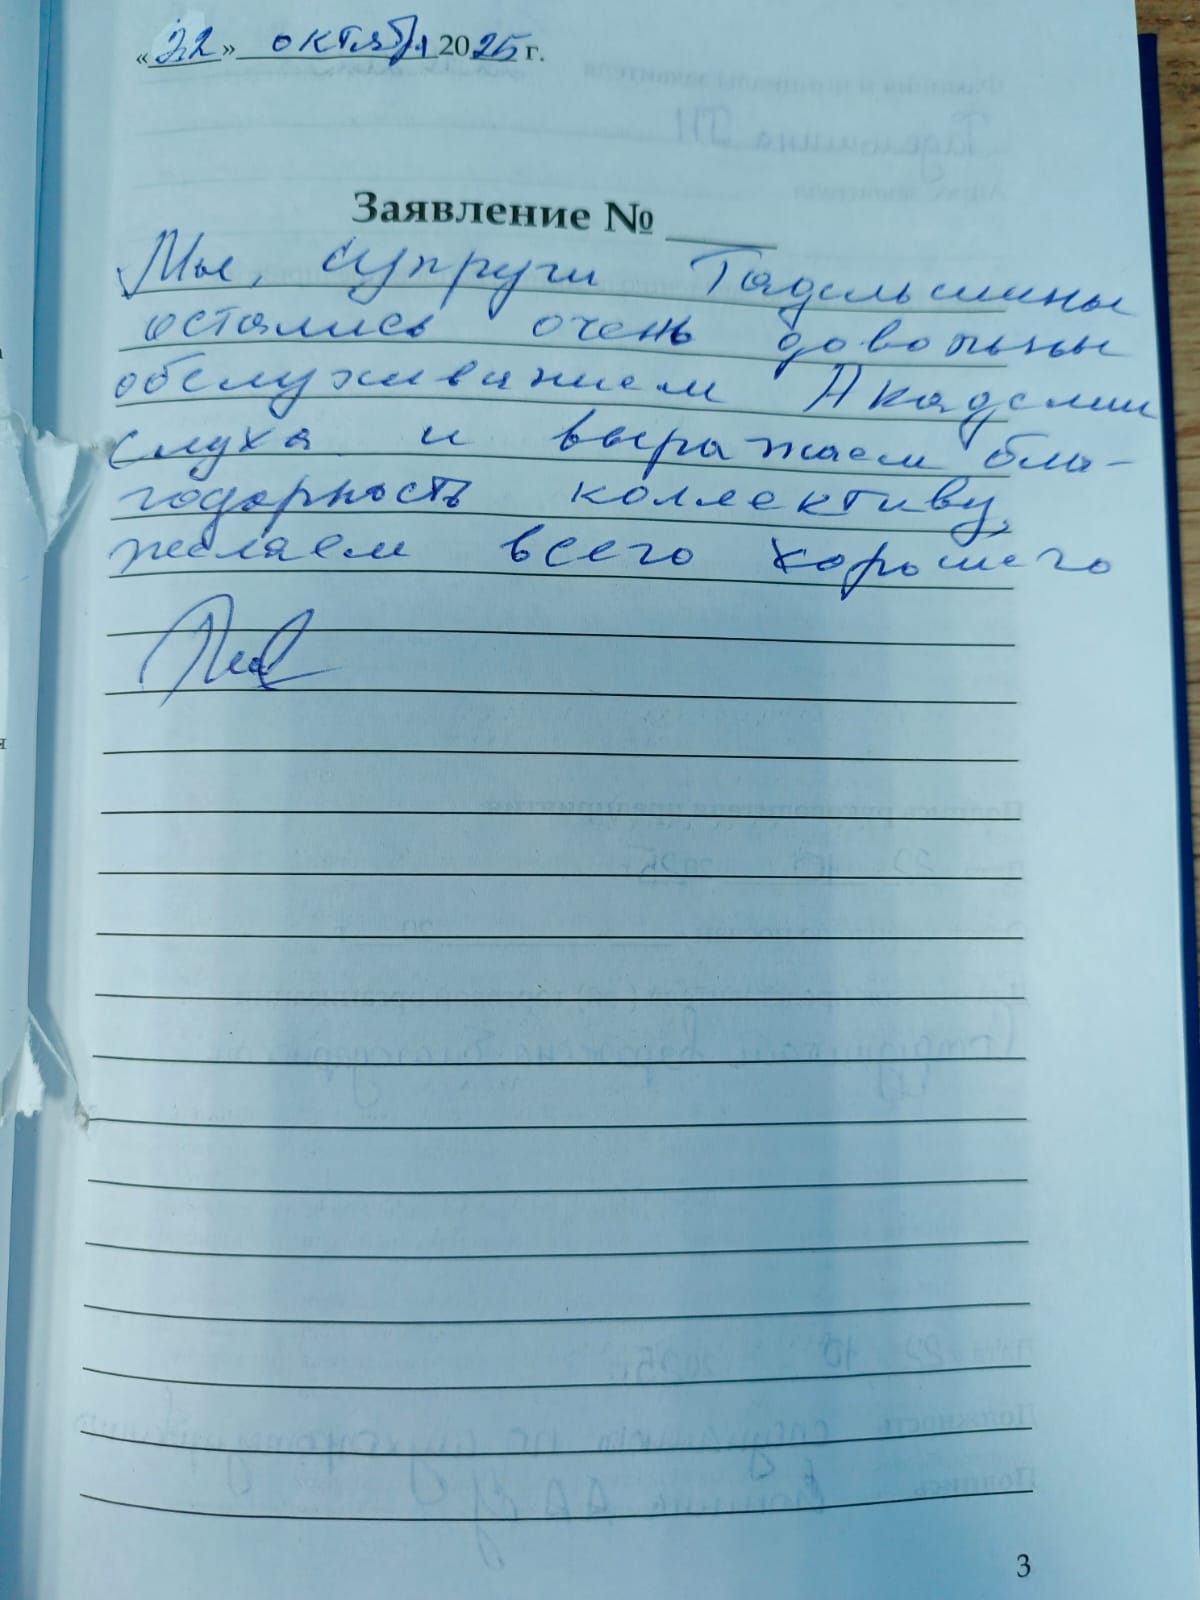 «22» октября 2025 г.
Заявление № ____
Мы, супруги Гадельшины
остались очень довольны
обслуживанием Академии
слуха и выражаем бла-
годарность коллективу,
желаем всего хорошего
3